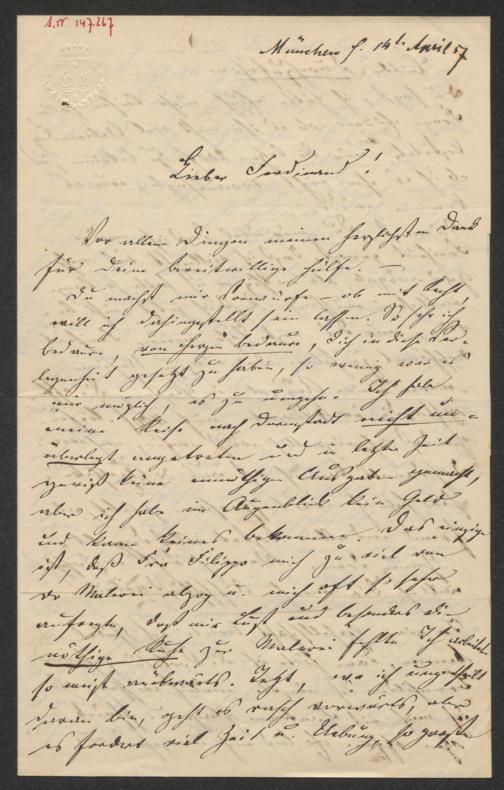 A.N 147.267
München d. 14t April 57
Lieber Ferdinand!
Vor allen Dingen meinen herzlichsten Dank
für Deine bereitwillige Hülfe. —
Du machst mir Vorwürfe – ob mit Recht,
will ich dahingestellt sein lassen. So sehr ich
bedaure, von Herzen bedaure, Dich in diese Ver-
legenheit gesetzt zu haben, so wenig war es
mir möglich, es zu umgehn. Ich habe
meine Reise nach Darmstadt nicht un-
überlegt angetreten und in letzter Zeit
gewiß keine unnöthigen Ausgaben gemacht,
aber ich habe im Augenblick kein Geld
und kann keines bekommen. Das einzige
ist, daß Fra Filippo mich zu viel von
der Malerei abzog u. mich oft so sehr
aufregte, daß mir Lust und besonders die
nöthige Ruhe zur Malerei fehlte. Ich arbeitete
so meist rückwärts. Jetzt, wo ich
daran bin, geht es rasch vorwärts, aber
es fordert viel Zeit u. Uebung, so große